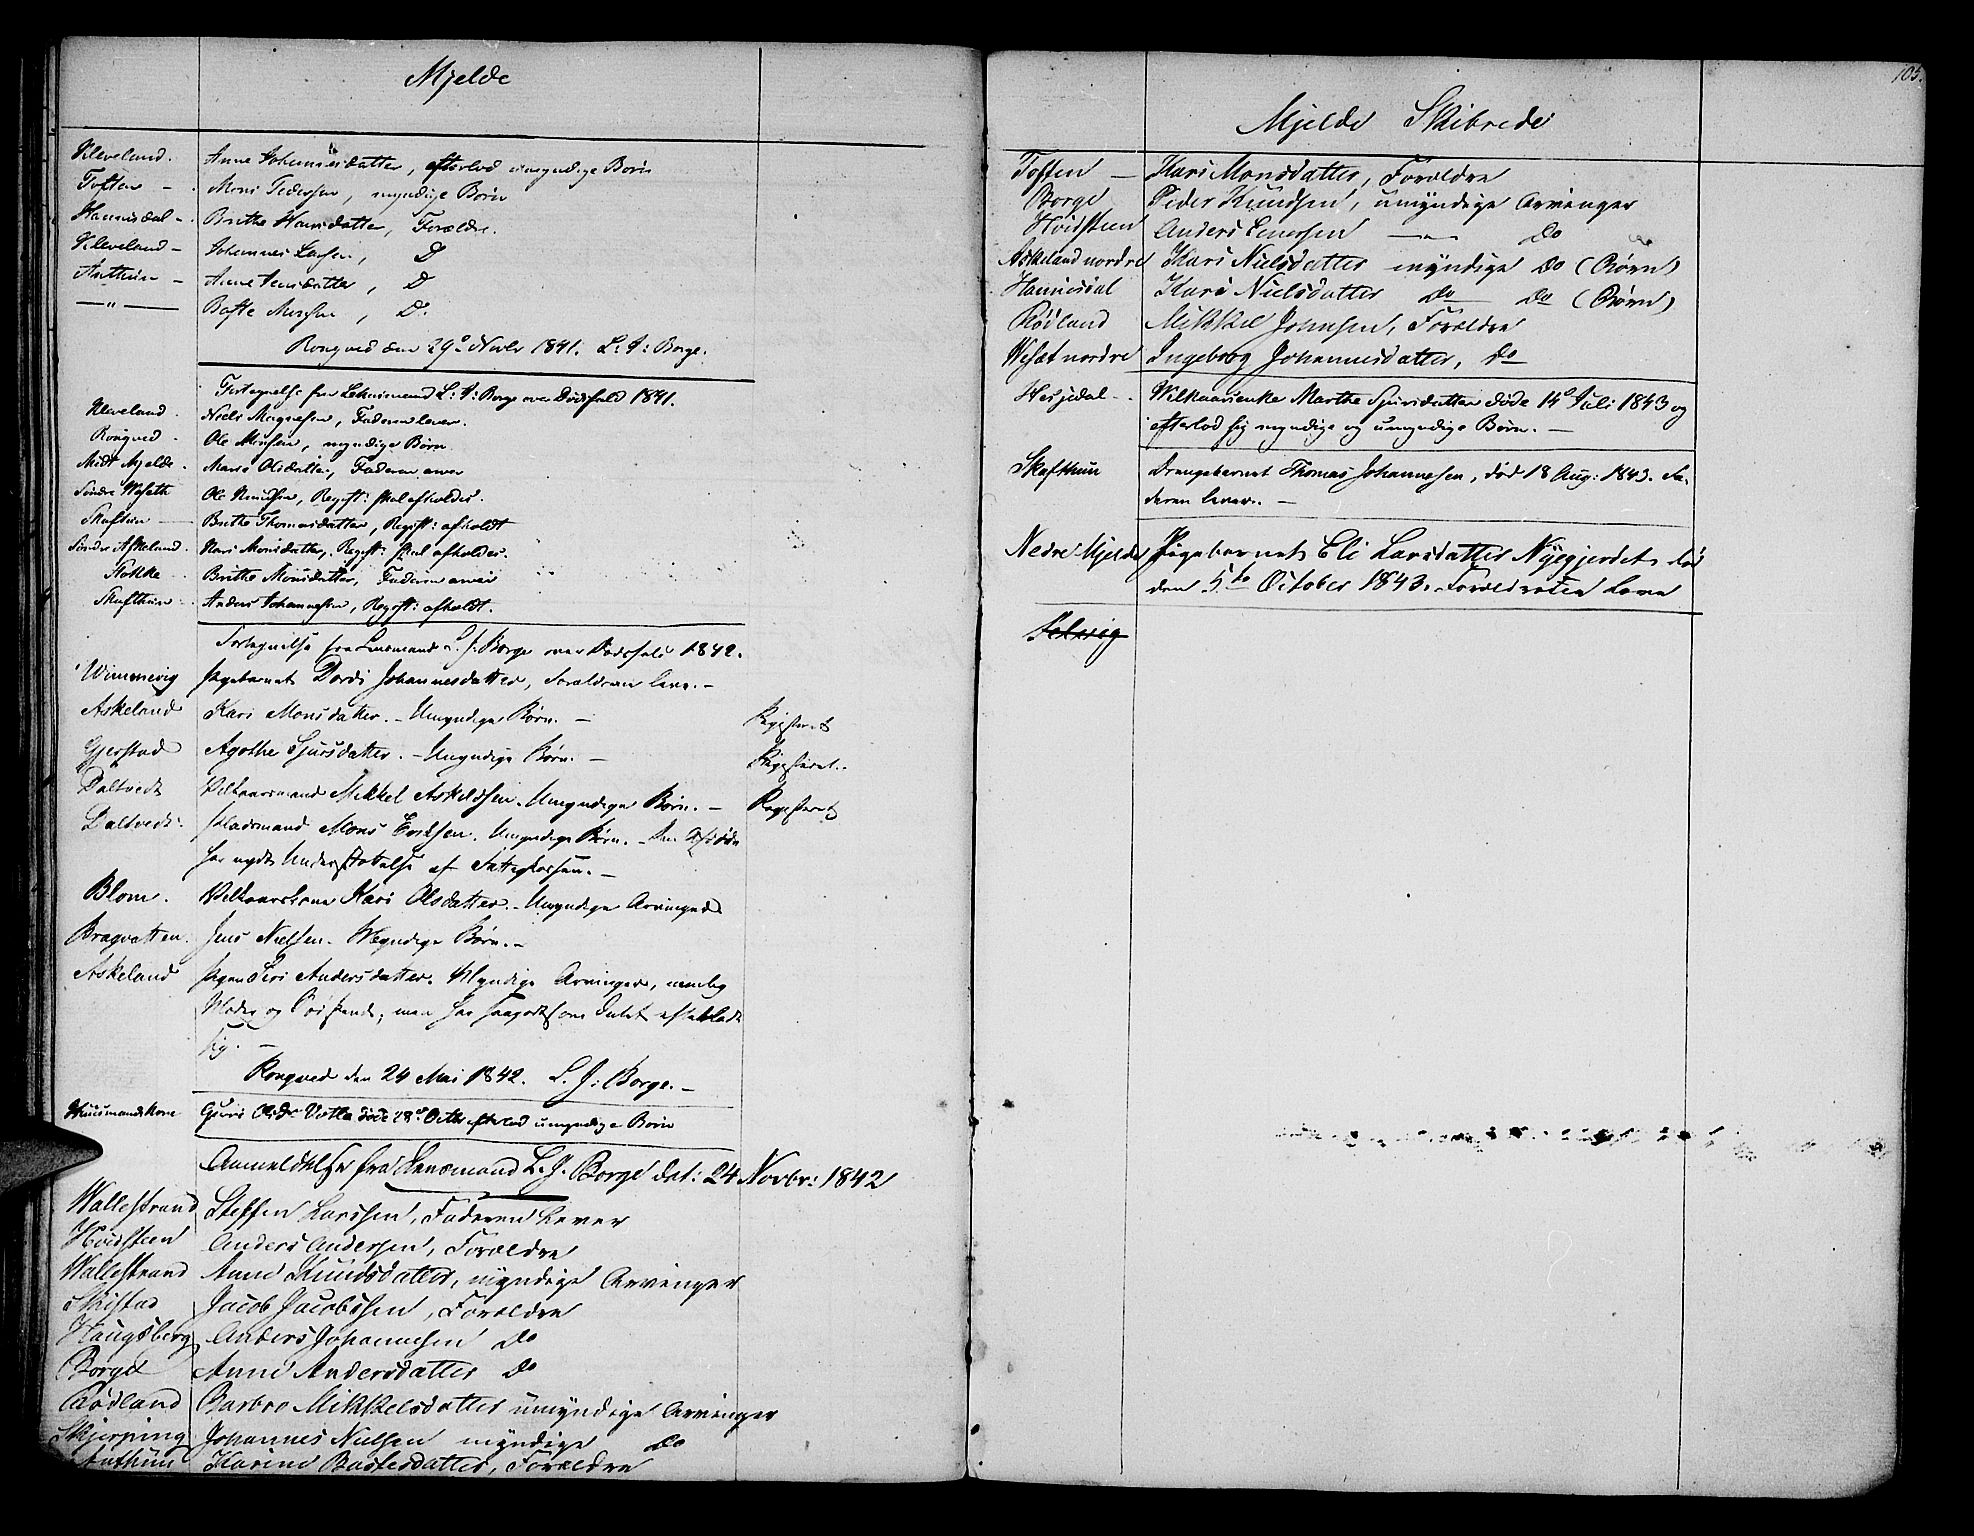 Mjelde
Kleveland. Anne Johannesdatter, efterlod umyndige Børn
Toften - Mons Pedersen, myndige Børn
Hannisdal - Brithe Hansdatter, Forældre.
Kleveland - Johannes Larsen, D
Anthun - Anne Jensdatter, D
—"— Baste Monsen, D.
Rongved den 29de Novbr 1841. L: J: Borge.
Fortegnelse fra Lehnsmand L: J: Borge over Dødsfald 1841.
Kleveland. Niels Magnesen, Faderen lever.
Rongved. Ole Monsen, myndige Børn
Midt Mjelde. Marie Olsdatter, Faderen
Søndre Wefeth Ole Knudsen, Regist: skal afholdes.
Skaftun - Brithe Thomasdatter, Regist: afholdt
Søndre Askeland. Kari Monsdatter, Regist: skal afholdes.
Stokke Brithe Monsdatter, Faderen
Skafthun Anders Johannesen, Regist: afholdt.
Fortegnelse fra Lensmand L. J. Borge over Dødsfald 1842.
Wimmevig Pigebarnet Dordi Johannesdatter, Forældrene leve. -
Askeland Kari Monsdatter. - Umyndige Børn. - Registeret
Gjerstad Agathe Sjursdatter. - Umyndige Børn. - Registeret.
Daltvedt Vilkaarsmand Mikkel Askildsen. Umyndige Børn. - Registeret
Daltvedt. Pladsmand Mons Eriksen. Umyndige Børn. - Den Afdøde
har nydt Understøttelse af Fattigkassen. -
Blom. Vilkaarskone Kari Olsdatter. - Umyndige Arvinger
Bragvatten. Jens Nielsen. Myndige Børn. -
Askeland Pigen Siri Andersdatter. Myndige Arvinger, nemlig
Moder og Sødskende, men har saagodtsom Intet efterladt
sig. -
Rongved den 24 Mai 1842. L. J: Borge. -
Huusmandskone Guri Olsdr Votle døde 28de Octbr efterlod umyndige Børn
Anmeldelse fra Lensmand L. J. Borge dat: 24 Novbr: 1842
Wallestrand Steffen Larssen, Faderen Lever
Høidsteen Anders Andersen, Forældre
Wallestrand Anne Knudsdatter, myndige Arvinger
Skistad Jacob Jacobssen, Forældre
Haugsberg Anders Johannesen Do
Borge Anne Andersdatter Do
Rødland Barbro Mikkelsdatter umyndige Arvinger
Skjerping Johannes Nielsen myndige Do
Anthun Karine Bastesdatter, Forældre
105.
Mjelde Skibrede
Toften - Kari Monsdatter, Forældre
Borge Peder Knudsen, umyndige Arvinger
Høidsteen Anders Enersen —"— Do
Askeland nordre Kari Nielsdatter myndige Do (Børn)
Hannisdal Kari Nielsdatter Do Do (Børn)
Rødland Mikkel Johnsen, Forældre
Wefæt nordre Ingeborg Johannesdatter, Do
Hesjedal - Wilkaarsenke Marthe Sjursdatter døde 14de Juli 1843 og
efterlod sig myndige og umyndige Børn. -
Skafthun Drengebarnet Thomas Johannesen, død 18 Aug: 1843. Fa-
deren lever. -
Nedre Mjelde Pigebarnet Eli Larsdatter Nyegjerdet, død
den 5te October 1843. Forældrene Leve